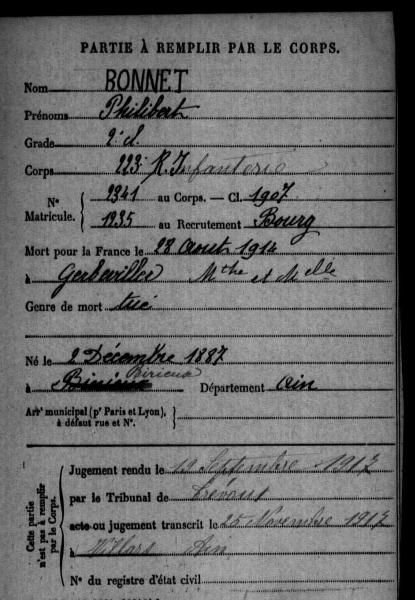 PARTIE À REMPLIR PAR LE CORPS.
Nom BONNET
Prénoms Philibert
Grade 2e cl.
Corps 223e R. Infanterie
N° Matricule. 2341 au Corps. — Cl. 1907
1235 au Recrutement Bourg
Mort pour la France le 28 Aout 1914
à Gerbeviller Mthe et Melle
Genre de mort tué
Né le 2 Décembre 1887
Birieux
à Département Ain
Art municipal (pr Paris et Lyon),
à défaut rue et N°.
Cette partie
n'est pas à remplir
par le Corps.
Jugement rendu le 19 Septembre 1917
par le Tribunal de Trévoux
acte ou jugement transcrit le 25 Novembre 1917
à Villars Ain
N° du registre d'état civil